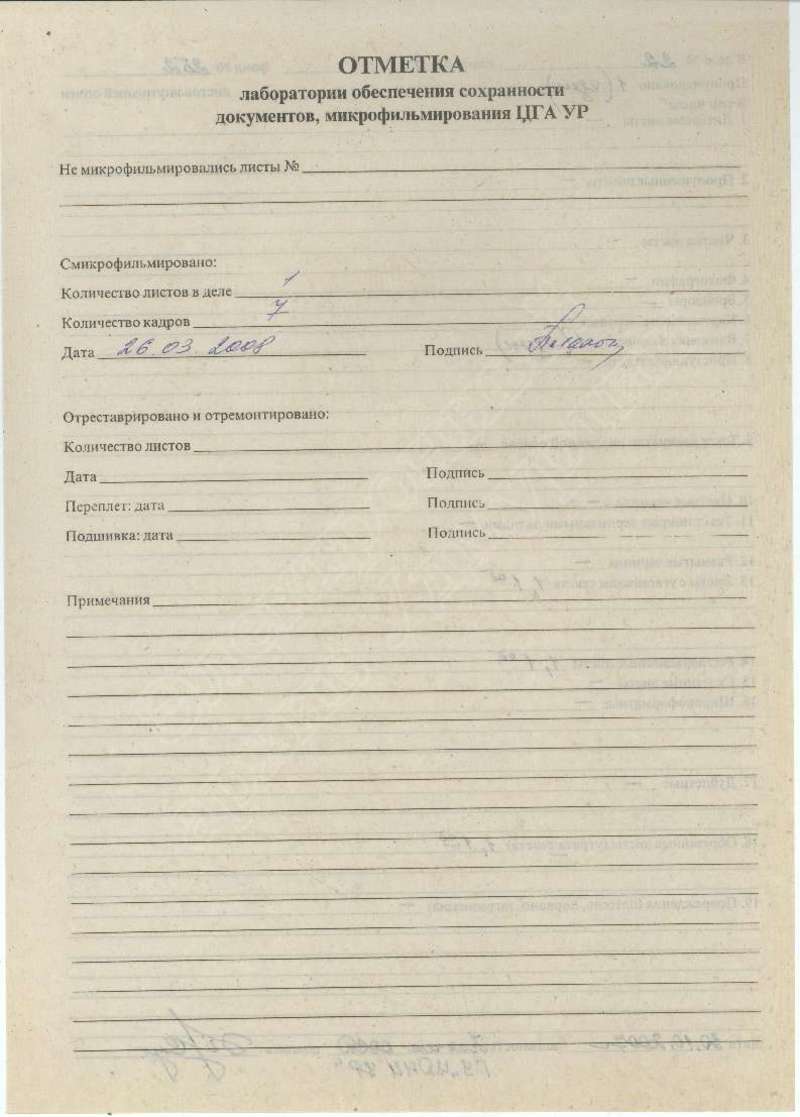 ОТМЕТКА
лаборатории обеспечения сохранности
документов, микрофильмирования ЦГА УР
Не микрофильмировались листы №
Смикрофильмировано:
Количество листов в деле 1
Количество кадров 7
Дата 26.03.2008 Подпись
Отреставрировано и отремонтировано:
Количество листов
Дата Подпись
Переплет: дата Подпись
Подшивка: дата Подпись
Примечания